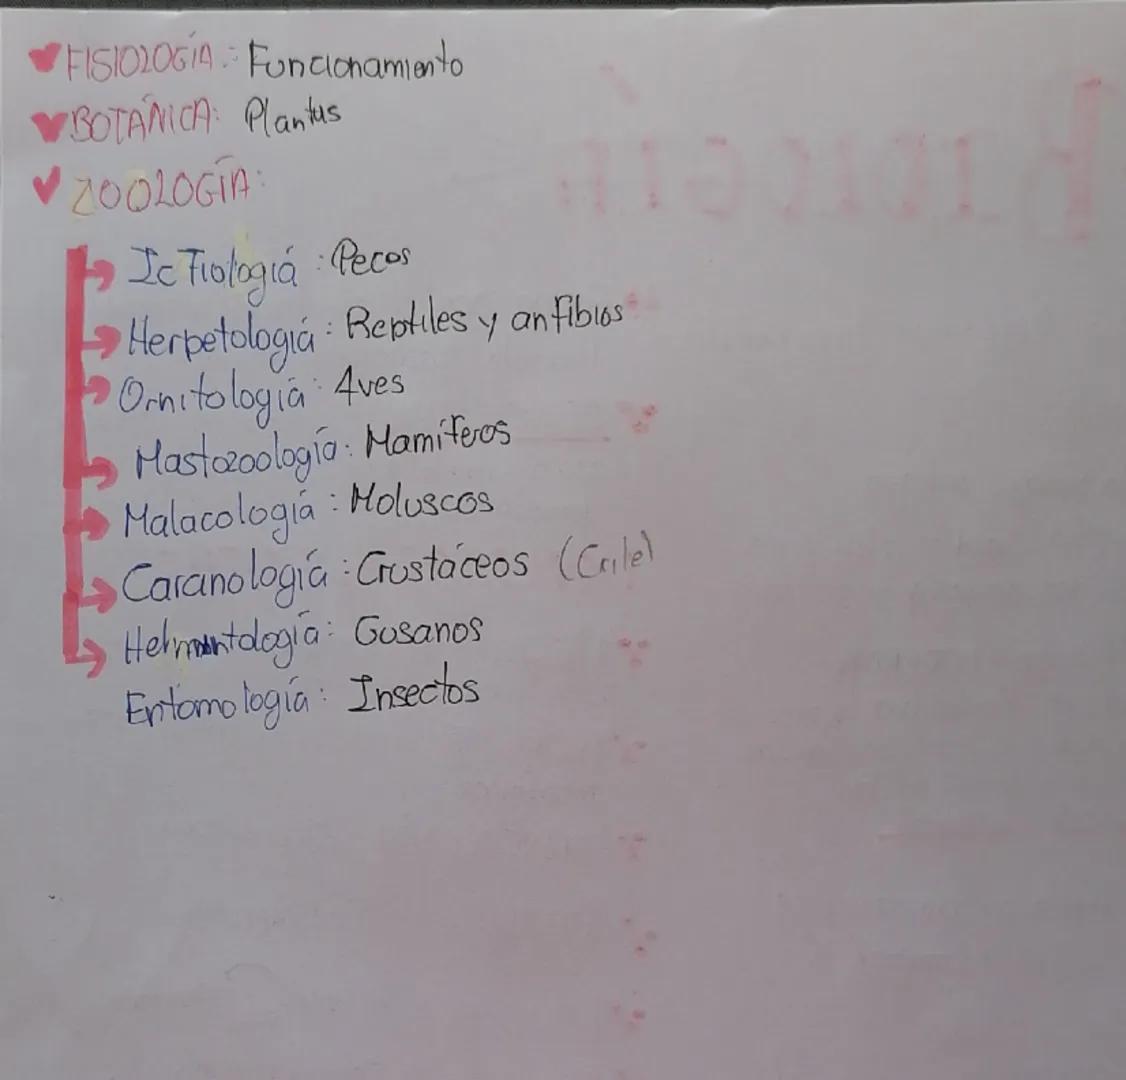 FISIOLOGÍA: Funcionamiento
BOTÁNICA: Plantas
ZOOLOGÍA:
Ictiología: Peces
Herpetología: Reptiles y anfibios
Ornitología: Aves
Mastozoología: Mamíferos
Malacología: Moluscos
Carcanología: Crustáceos
Helmintología: Gusanos
Entomología: Insectos